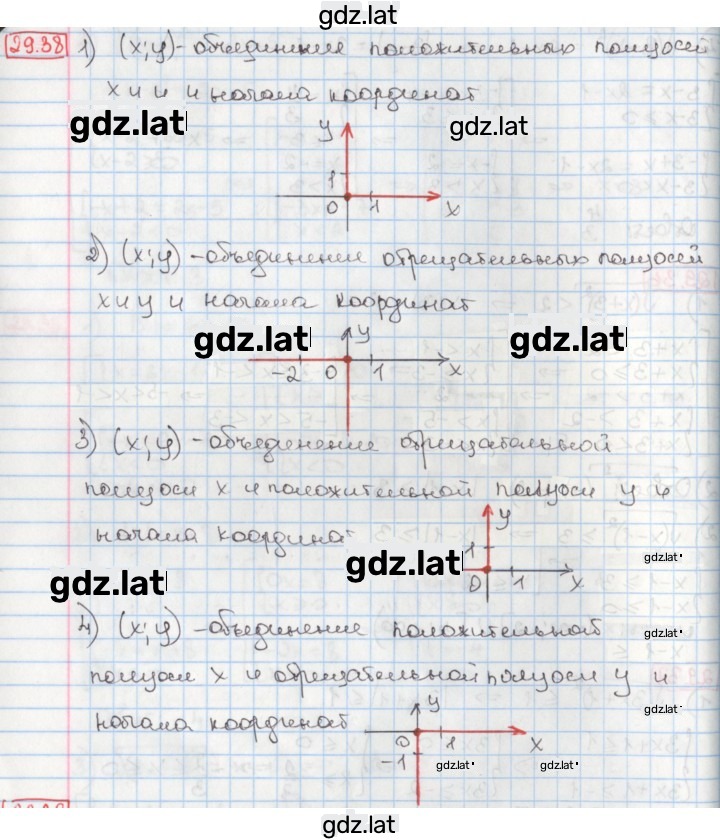 gdz.lat
29.38 1) (x;y) - объединение положительных полуосей
x и y и начала координат
gdz.lat gdz.lat
y
1
0 1 x
2) (x;y) - объединение отрицательных полуосей
x и y и начала координат
gdz.lat gdz.lat
y
-2 0 1 x
3) (x;y) - объединение отрицательной
полуоси x и положительной полуоси y и
начала координат
y
gdz.lat gdz.lat
1
gdz.lat
0 1 x
4) (x;y) - объединение положительной
gdz.lat
полуоси x и отрицательной полуоси y и
начала координат
gdz.lat
y
0 1 x
-1
gdz.lat gdz.lat
gdz.lat